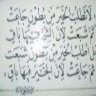 لا تطلب الخير من بطون جاعت
ثم شبعت لأن الشح فيها باق
الخير من بطون شبعت
ثم جاعت لأن الخير فيها باق